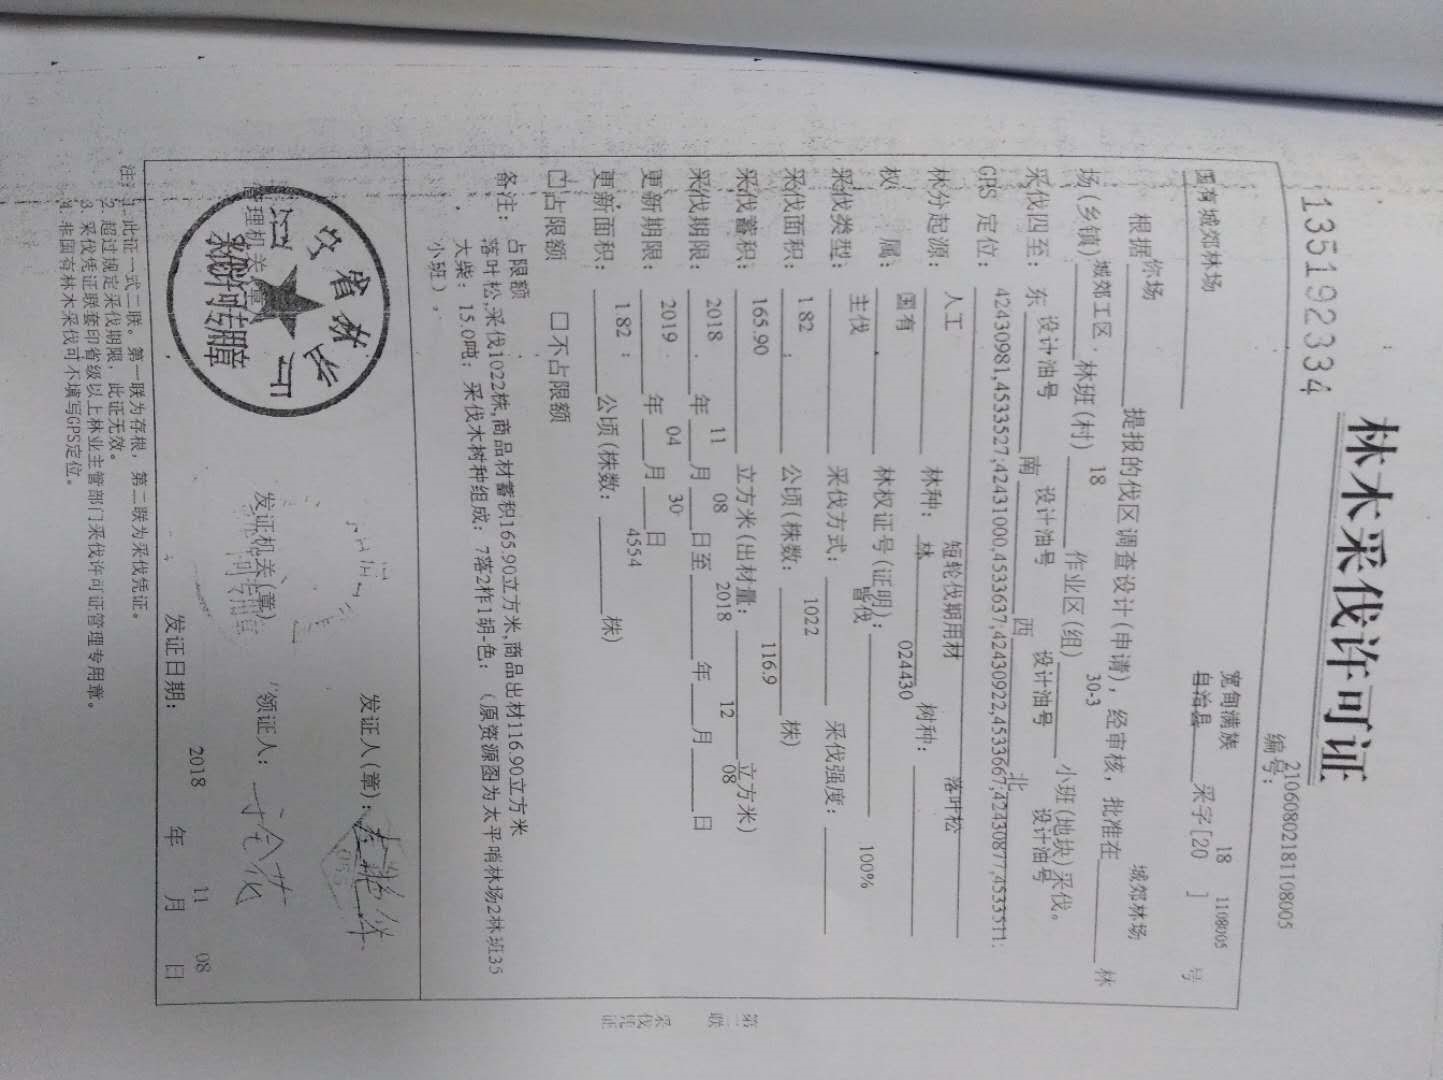 林木采伐许可证
135192334
编号: 21060802181108005
国有城郊林场
宽甸满族自治县 采字[20 18 ] 1108005 号
根据 你场 提报的伐区调查设计(申请), 经审核, 批准在 城郊林场 林
场(乡镇) 城郊工区 林班(村) 18 作业区(组) 30-3 小班(地块)采伐。
采伐四至: 东 设计油号 南 设计油号 西 设计油号 北 设计油号
GPS 定位: 42430981,4533527;42431000,4533637;42430922,4533667;42430877,4533511.
林分起源: 人工 林种: 短轮伐期用材林 树种: 落叶松
权 属: 国有 林权证号(证明): 024430
采伐类型: 主伐 采伐方式: 皆伐 采伐强度: 100%
采伐面积: 1 82 公顷(株数: 1022 株)
采伐蓄积: 165.90 立方米(出材量: 116.9 立方米)
采伐期限: 2018 年 11 月 08 日至 2018 年 12 月 08 日
更新期限: 2019 年 04 月 30 日
更新面积: 1 82 公顷(株数: 4554 株)
□占限额 □不占限额
备注: 占限额
落叶松,采伐1022株,商品材蓄积165.90立方米,商品出材116.90立方米
大柴: 15.0吨; 采伐木树种组成: 7落2柞1胡-色; (原资源图为太平哨林场2林班35
小班) 。
第二联 采伐凭证
辽宁省林业厅
采伐许可专用章
管理机关(章)
发证机关(章)
许可专用章
发证人(章):
085
领证人: 于全花
发证日期: 2018 年 11 月 08 日
注: 1. 此证一式二联。第一联为存根, 第二联为采伐凭证。
2. 超过规定采伐期限, 此证无效。
3. 采伐凭证联套印省级以上林业主管部门采伐许可证管理专用章。
4. 非国有林木采伐可不填写GPS定位。